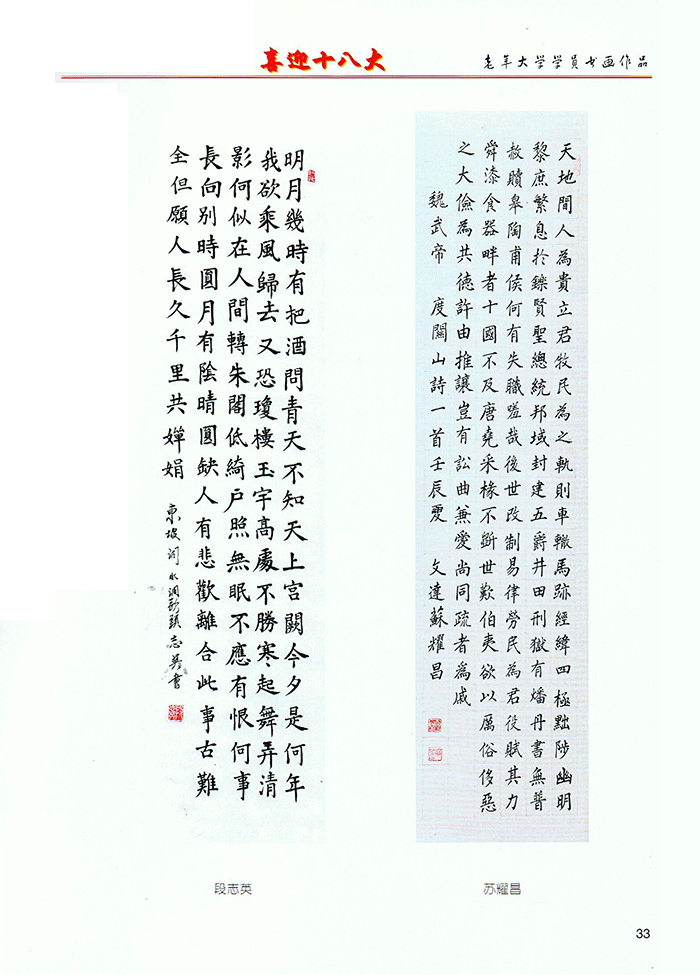 喜迎十八大
老年大学学员书画作品
明月幾時有把酒問青天不知天上宮闕今夕是何年
我欲乘風歸去又恐瓊樓玉宇高處不勝寒起舞弄清
影何似在人間轉朱閣低綺戶照無眠不應有恨何事
長向別時圓月有陰晴圓缺人有悲歡離合此事古難
全但願人長久千里共嬋娟
東坡詞水調歌頭志英書
天地間人為貴立君牧民為之軌則車轍馬跡經緯四極黜陟幽明
黎庶繁息於鑠賢聖總統邦域封建五爵井田刑獄有燔丹書無普
赦贖皋陶甫侯何有失職嗟哉後世改制易律勞民為君役賦其力
舜漆食器畔者十國不及唐堯采椽不斲世歎伯夷欲以厲俗侈惡
之大儉為共德許由推讓豈有訟曲兼愛尚同疏者為戚
魏武帝 度關山詩一首壬辰夏 文達蘇耀昌
段志英
苏耀昌
33